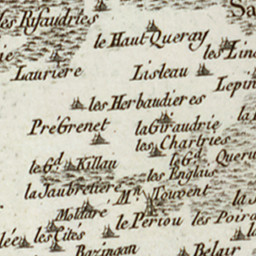 les Rifaudries
Sa
le Haut Queray
les Lin
Laurière
Lisleau
Lepin
les Herbaudieres
la
PreGrenet
la Giraudrie
les Chartries
le Gd Killau
le Gd Queru
les Englais
la Jaubretiere
Mn Touvent
la J
Moldure
le Periou
les Poira
lée
les Cites
la
Bazingan
Belair